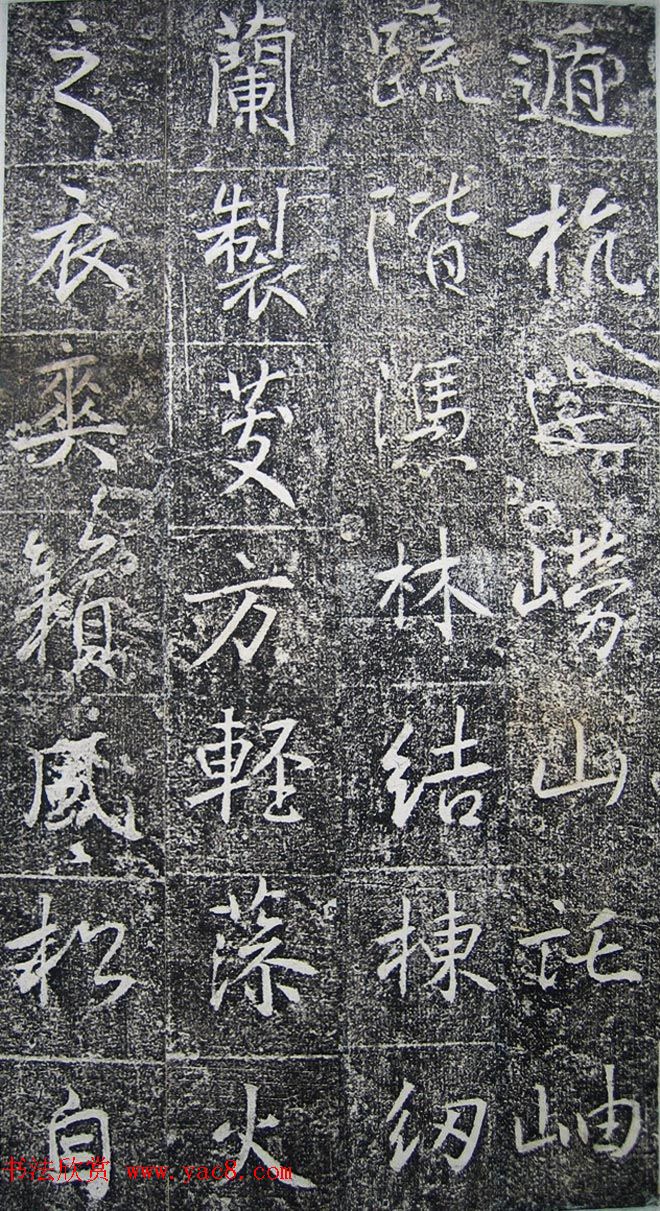 遁杭迹嶗山託岫
䟽階憑林結棟紉
蘭製芰方輕藻火
之衣爽籟風松自
书法欣赏 www.yac8.com